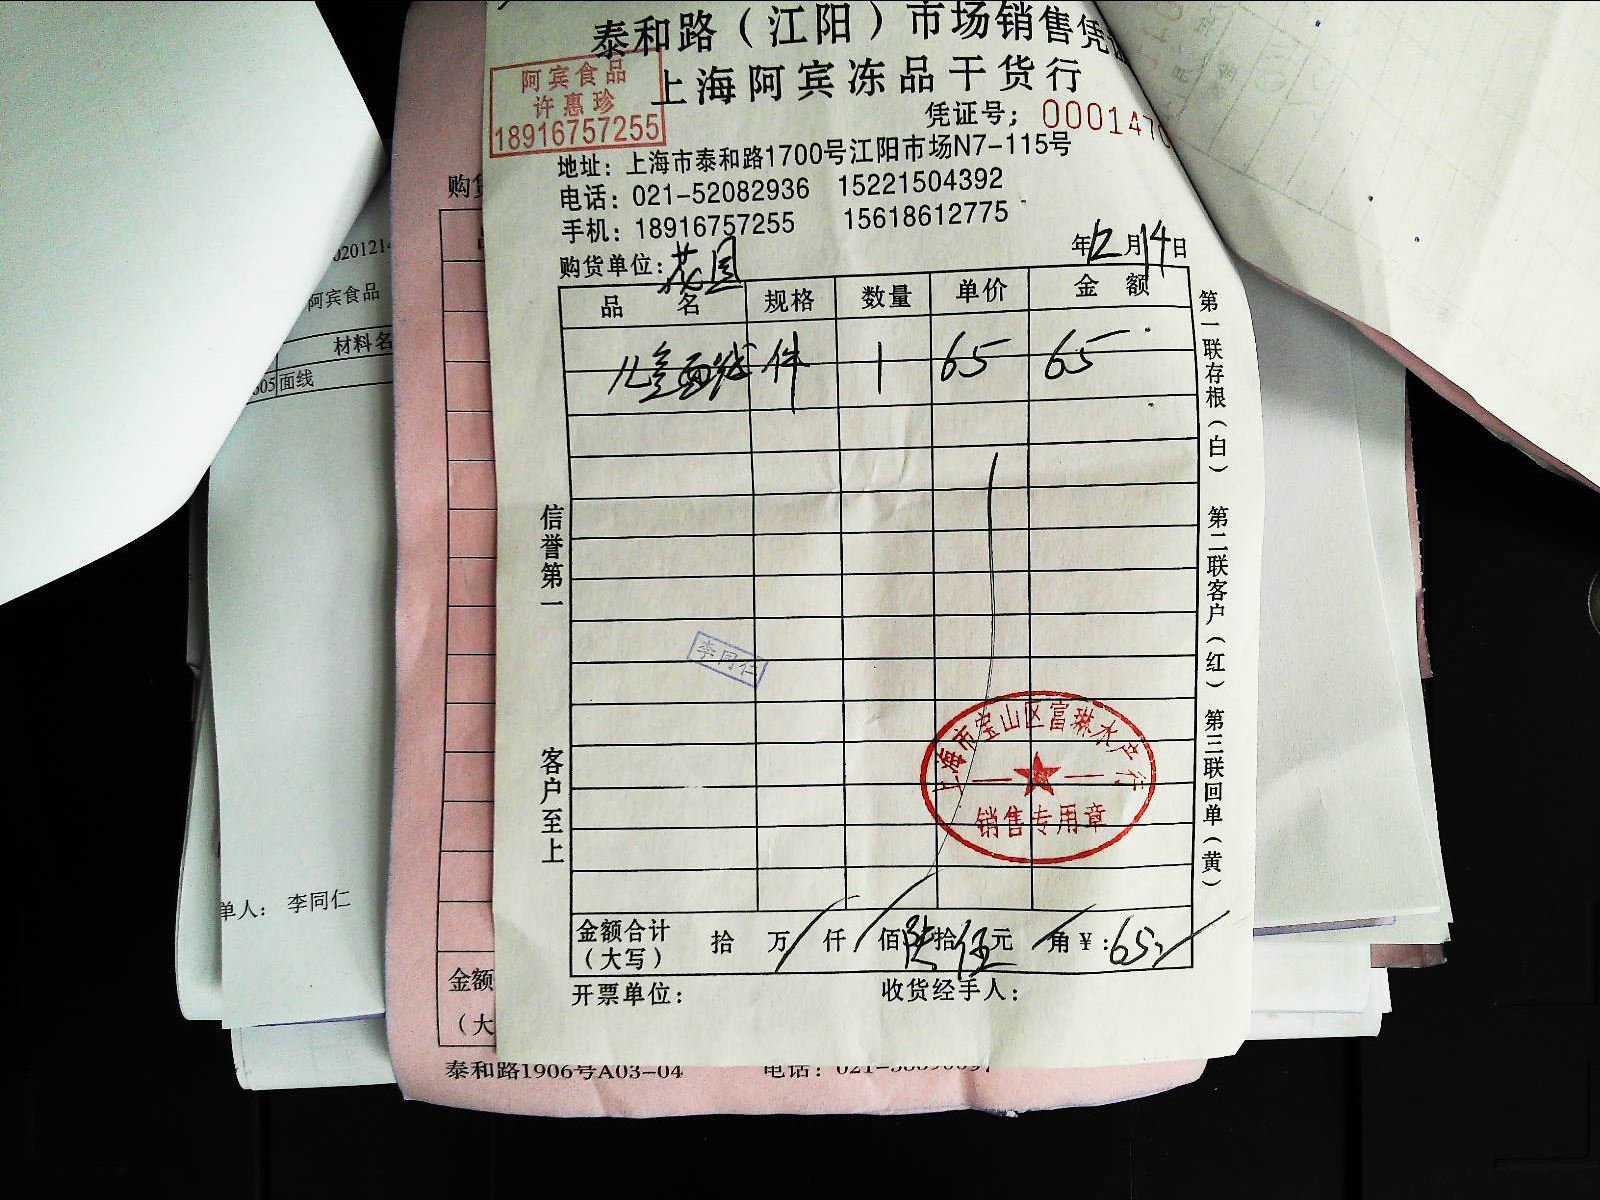 泰和路（江阳）市场销售凭
上海阿宾冻品干货行
阿宾食品
许惠珍
18916757255
凭证号：000147
地址：上海市泰和路1700号江阳市场N7-115号
电话：021-52082936 15221504392
手机：18916757255 15618612775
购货单位：花园
年12月14日
品名 规格 数量 单价 金额
儿童面线 件 1 65 65
信誉第一
客户至上
第一联存根（白） 第二联客户（红） 第三联回单（黄）
李同仁
上海市宝山区富琳水产行
销售专用章
金额合计（大写） 拾 万 仟 佰陆拾伍元 角 ¥：65
开票单位： 收货经手人：
购货
金额
（大
泰和路1906号A03-04 电话：021-
阿宾食品
材料名
05 面线
单人： 李同仁